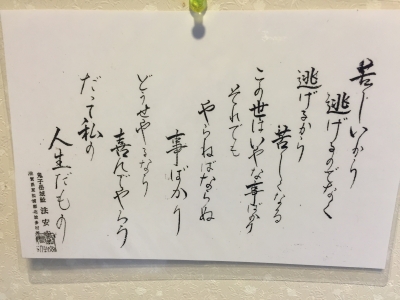 苦しいから
逃げるのでなく
逃げるから
苦しくなる
この世はいやな事ばかり
それでも
やらねばならぬ
事ばかり
どうせやるなら
喜んでやろう
だって私の
人生だもの
法安